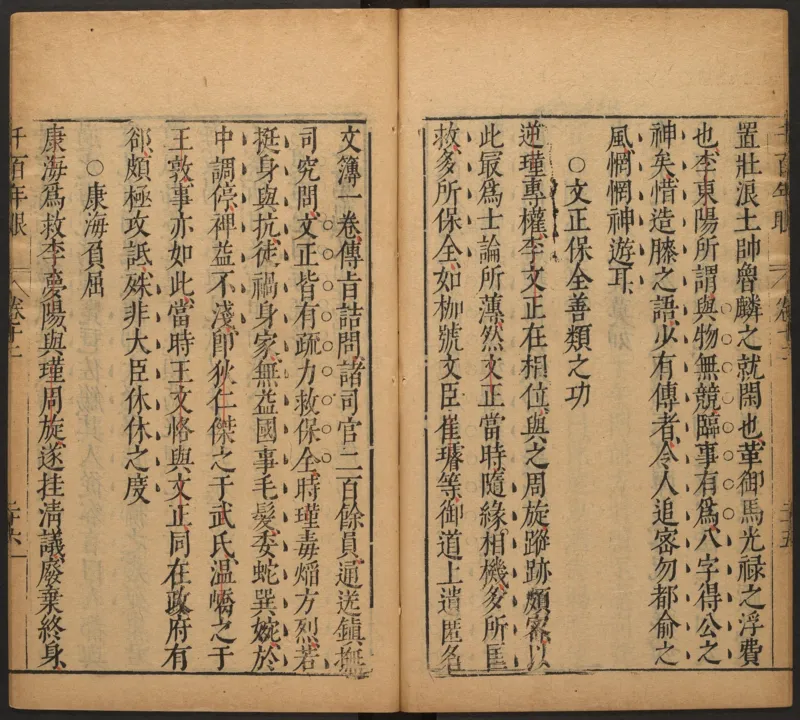 置壯浪土帥魯麟之就閑也革御馬光祿之浮費
也李東陽所謂與物無競臨事有爲八字得公之
神矣惜造膝之語少有傳者令人追容勿都俞之
風惘惘神遊耳
○文正保全善類之功
逆瑾專權李文正在相位與之周旋蹤跡頗密以
此最爲士論所薄然文正當時隨緣相機多所匡
救多所保全如枷號文臣崔璿等御道上遺匿名
文簿一卷傳旨詰問諸司官二百餘員逓送鎮撫
司究問文正皆有疏力救保全時瑾毒熖方烈若
挺身與抗徒禍身家無益國事毛髮委蛇巽婉於
中調停裨益不淺卽狄仁傑之于武氏温嶠之于
王敦事亦如此當時王文恪與文正同在政府有
郤頗極攻詆殊非大臣休休之度
○康海負屈
康海爲救李慶陽與瑾周旋遂挂淸議廢棄終身
千百年眼
卷十二
二十五
千百年眼
卷十二
二十六